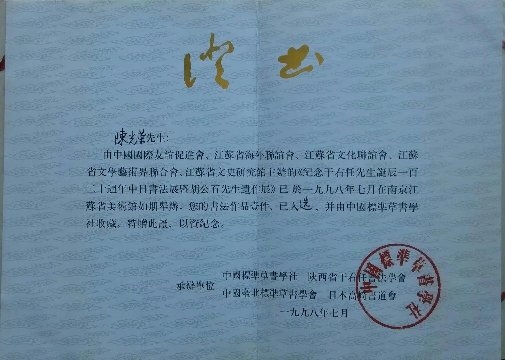 證書
陳光榮先生：
由中國國際友誼促進會、江蘇省海外聯誼會、江蘇省文化聯誼會、江蘇
省文學藝術界聯合會、江蘇省文史研究館主辦的《紀念于右任先生誕辰一百
二十週年中日書法展暨胡公石先生遺作展》已於一九九八年七月在南京江
蘇省美術館如期舉辦。您的書法作品壹件，已入選，并由中國標準草書學
社收藏。特贈此證，以資紀念。
承辦單位
中國標準草書學社 陝西省于右任書法學會
中國東北標準草書學會 日本高崎書道會
一九九八年七月
中國標準草書學社